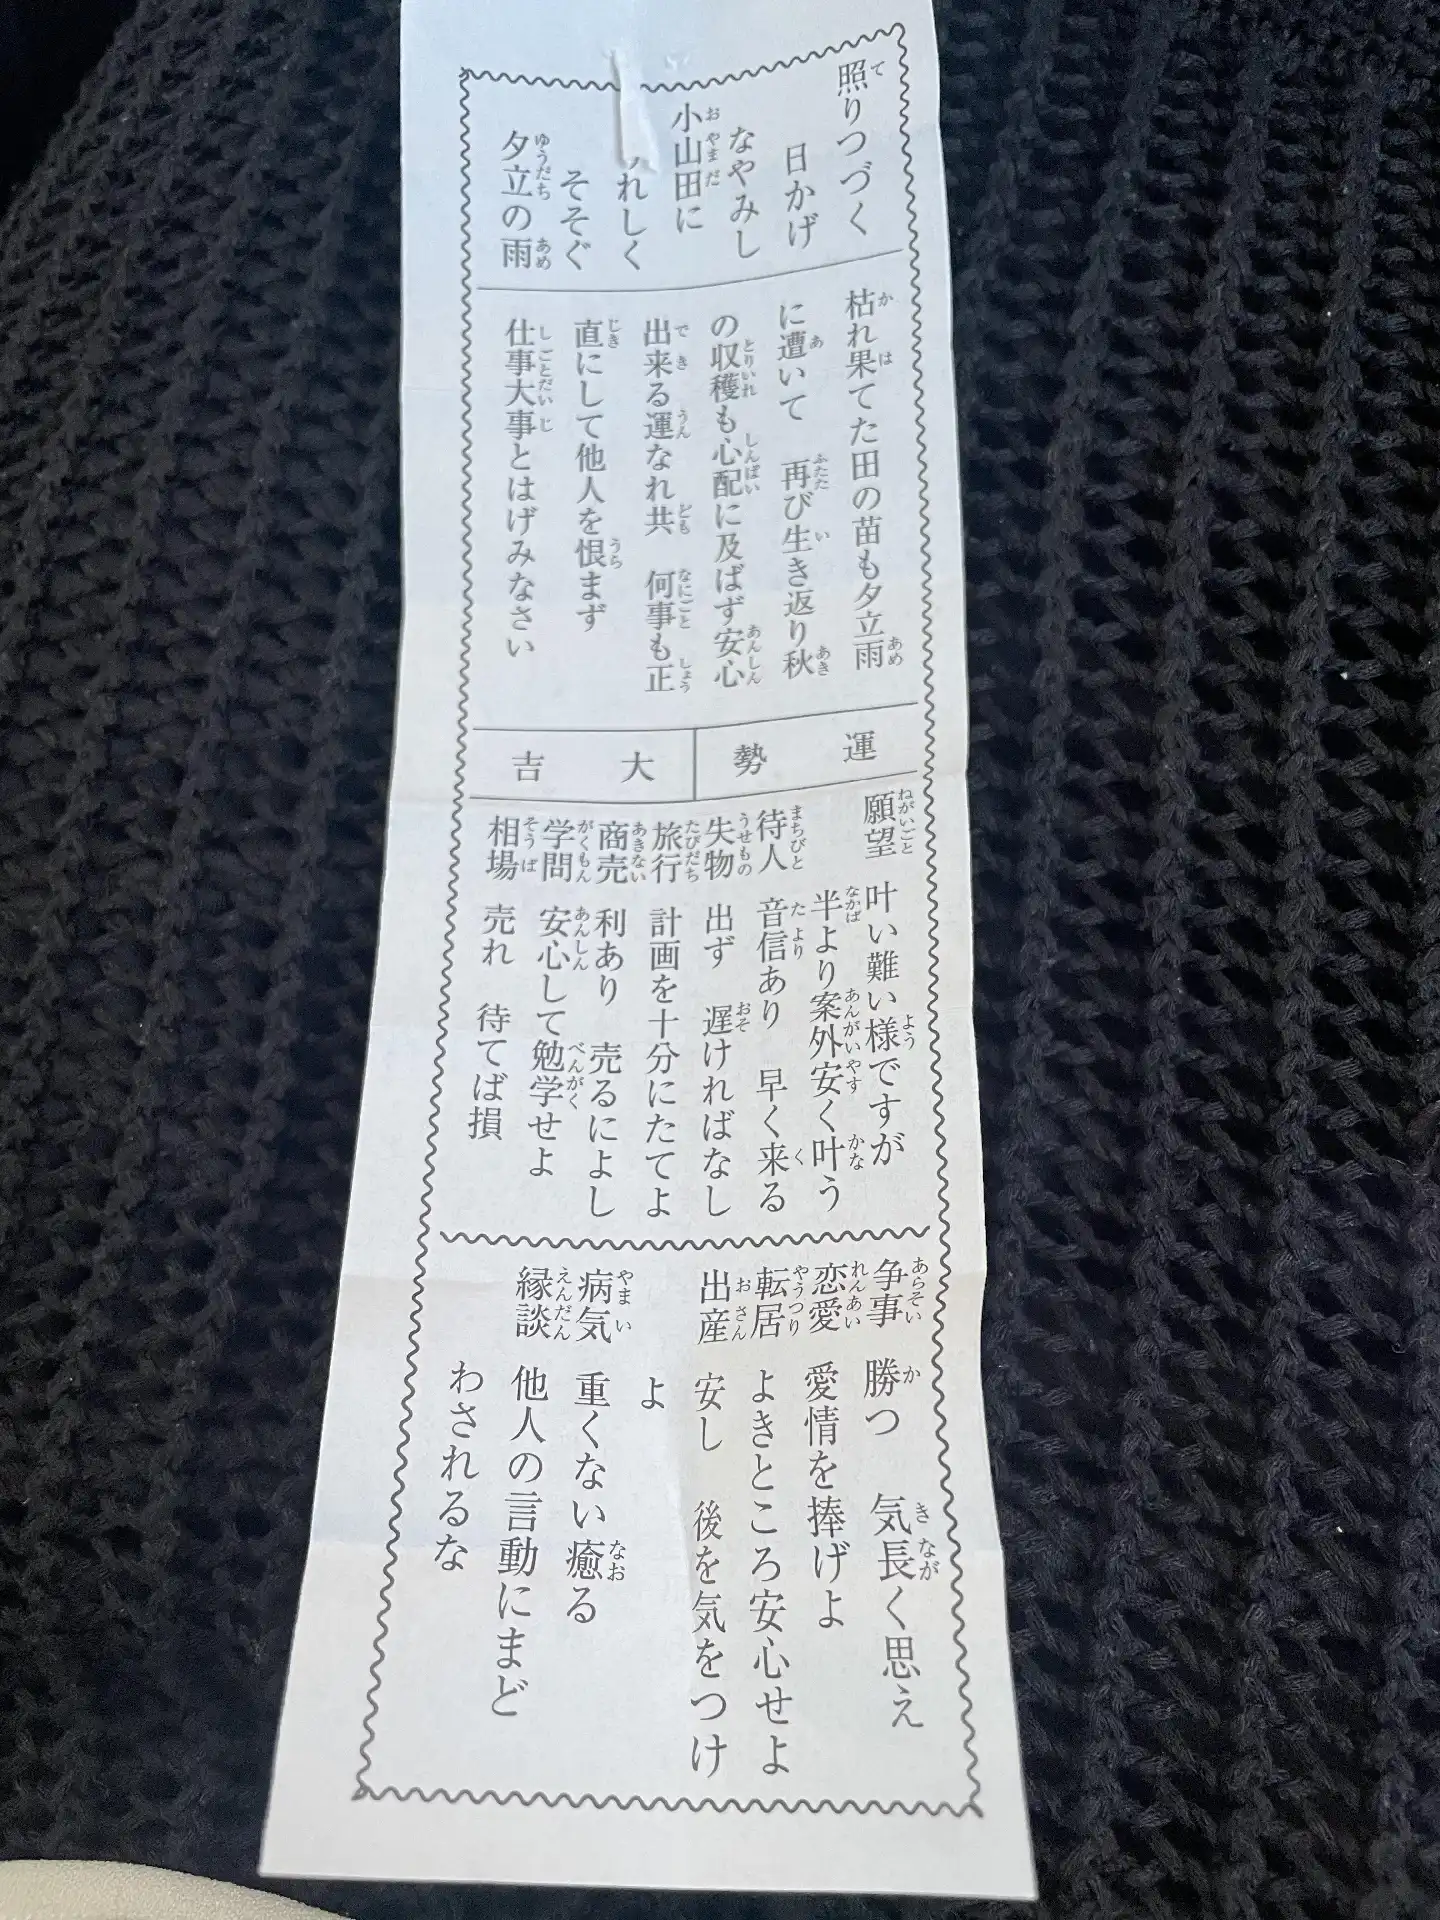 照りつづく
日かげ
なやみし
小山田に
れしく
そそぐ
夕立の雨
枯れ果てた田の苗も夕立雨
に遭いて　再び生き返り秋
の収穫も心配に及ばず安心
出来る運なれ共　何事も正
直にして他人を恨まず
仕事大事とはげみなさい
運勢　大吉
願望　叶い難い様ですが
半より案外安く叶う
待人　音信あり　早く来る
失物　出ず　遅ければなし
旅行　計画を十分にたてよ
商売　利あり　売るによし
学問　安心して勉学せよ
相場　売れ　待てば損
争事　勝つ　気長く思え
恋愛　愛情を捧げよ
転居　よきところ安心せよ
出産　安し　後を気をつけ
よ
病気　重くない癒る
縁談　他人の言動にまど
わされるな